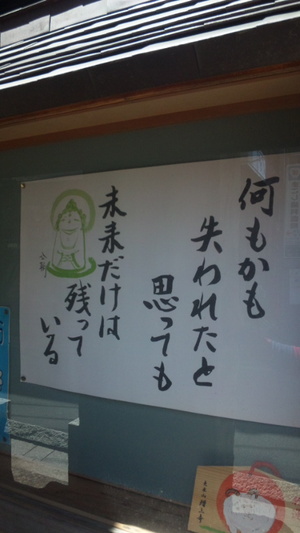 何もかも
失われたと
思っても
未来だけは
残って
いる